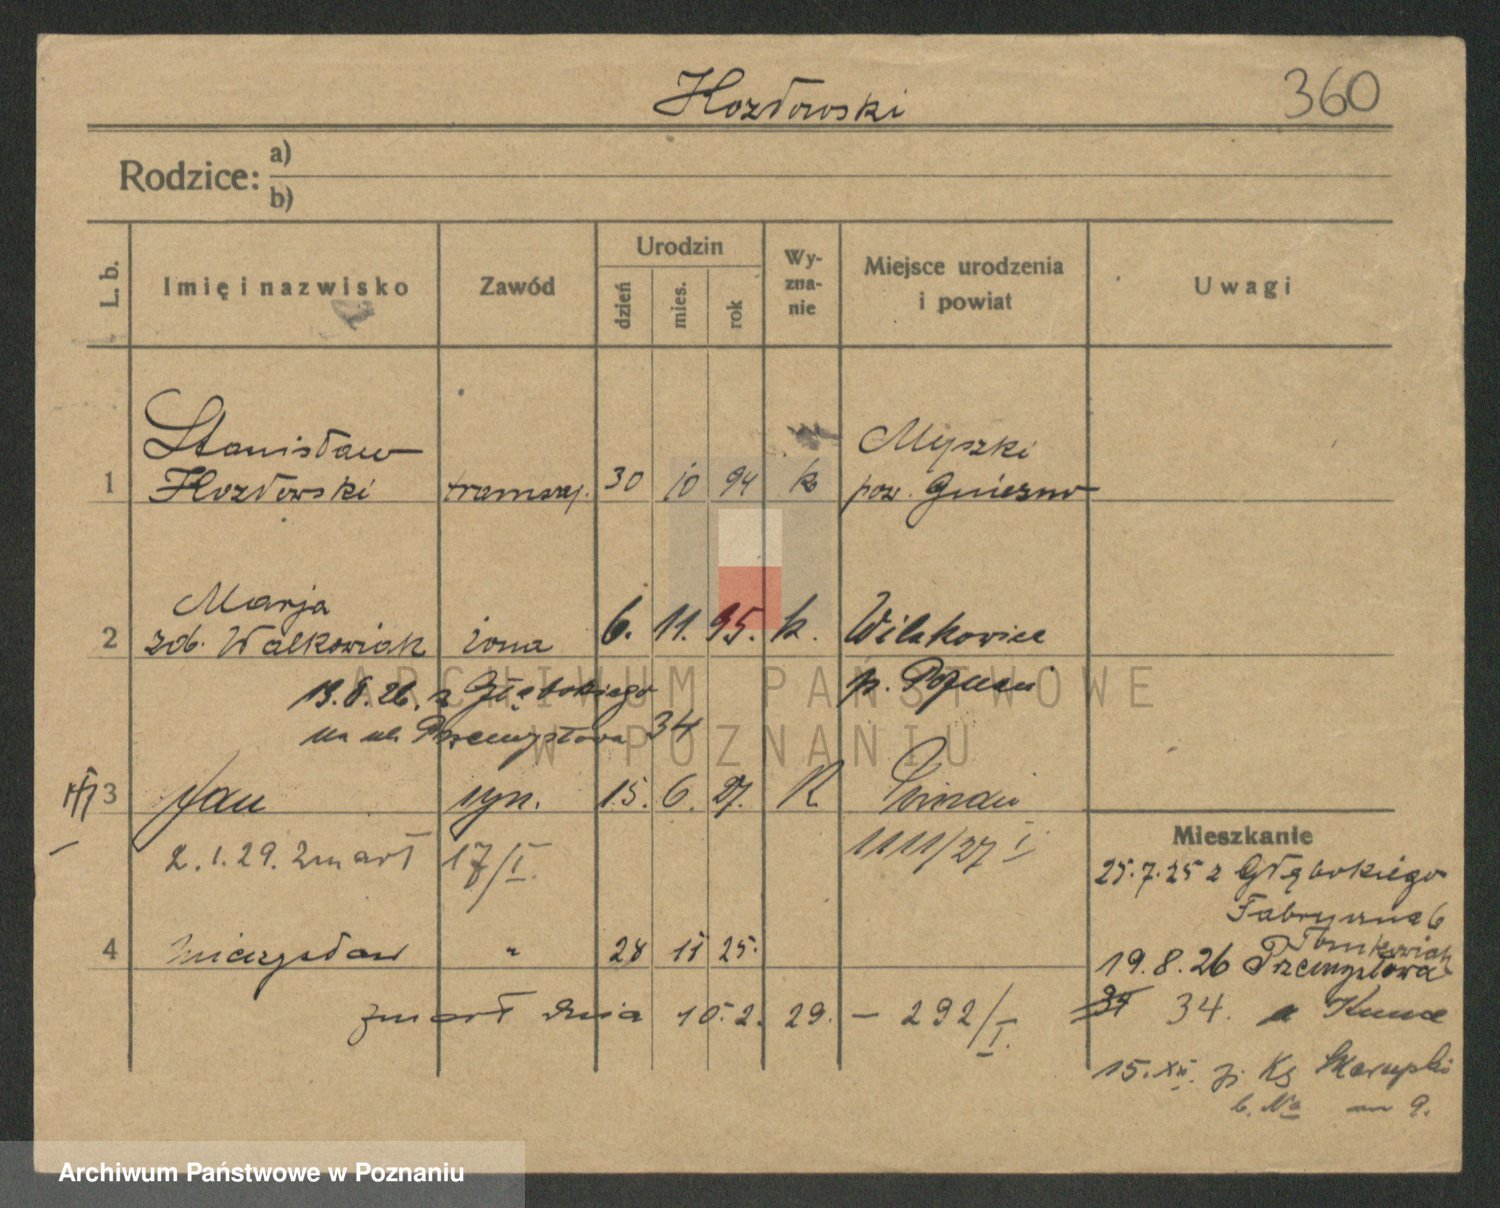 Hozdowski
360
Rodzice: a)
b)
L. b.
Imię i nazwisko
Zawód
Urodzin
dzień
mies.
rok
Wy-
zna-
nie
Miejsce urodzenia
i powiat
Uwagi
Stanisław
Myszki
1 Hozdowski tramwaj. 30 10 94 k pow. Gniezno
Marja
2 zd. Walkowiak żona 6. 11. 95. k. Wilkowice
p. Poznań
13.8.26. z Głębokiego
na ul. Przemysłowa 34
3 Jan syn. 15. 6. 27. K
1111/27 I
2.1.29. zmarł 17/I.
4 Mieczysław " 28 11 25.
zmarł dnia 10.2.29. – 292/I.
Mieszkanie
25.7.25 z Głębokiego
Fabryczna 6
19.8.26 Przemysłowa
34 34.
15.XII.
9.
ARCHIWUM PAŃSTWOWE
W POZNANIU
Archiwum Państwowe w Poznaniu